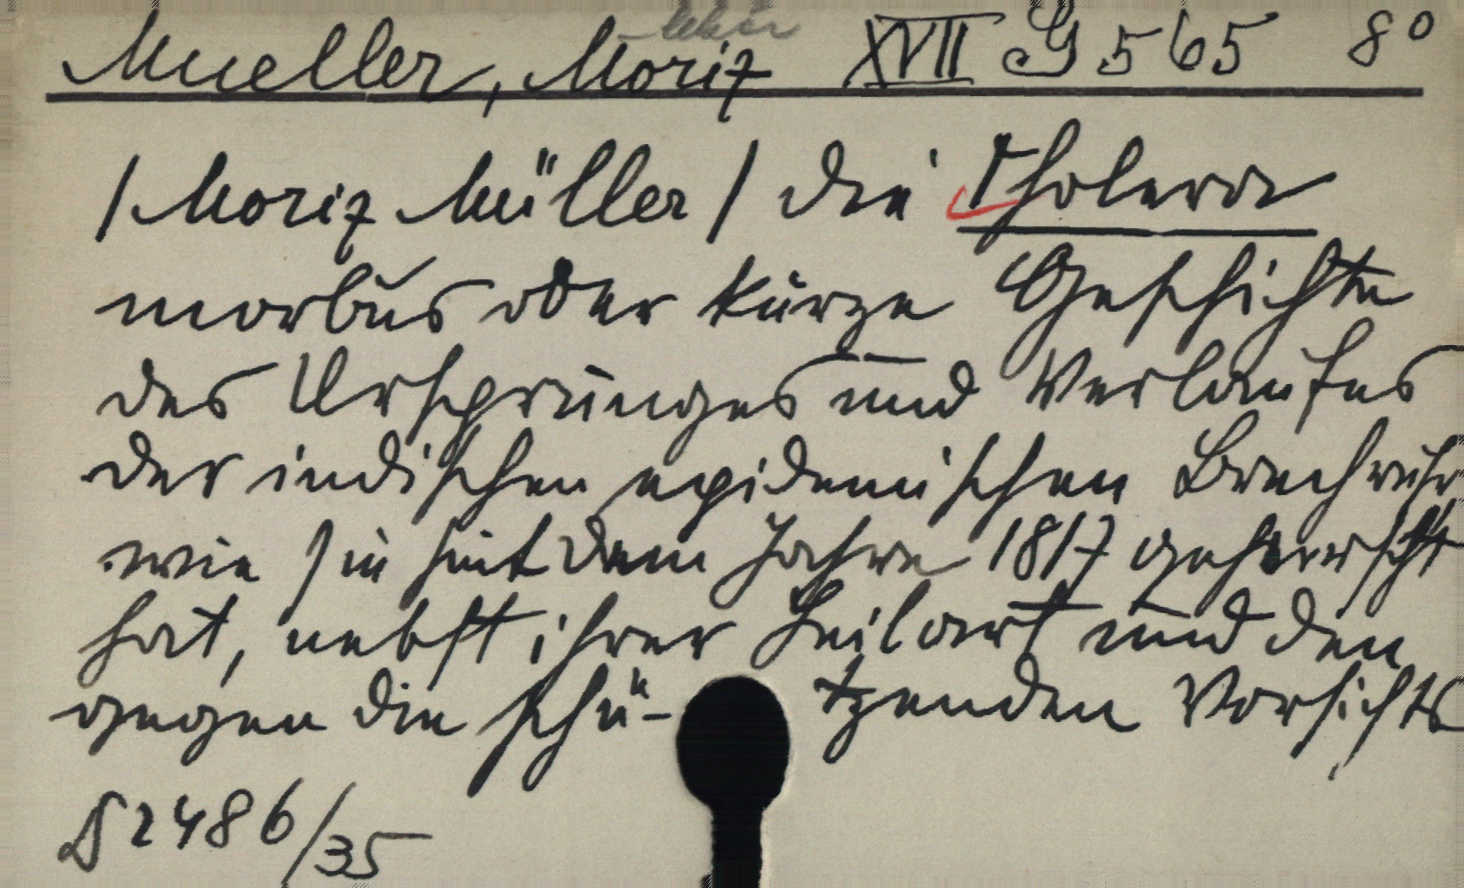 Mueller, Moriz XVII G 565 8°
/ Moriz Müller / die Cholera
morbus oder kurze Geschichte
des Ursprunges und Verlaufes
der indischen epidemischen Brechruhr
wie sie seit dem Jahre 1817 geherrscht
hat, nebst ihrer Heilart und den
gegen die schü- tzenden Vorsichts
2486/35